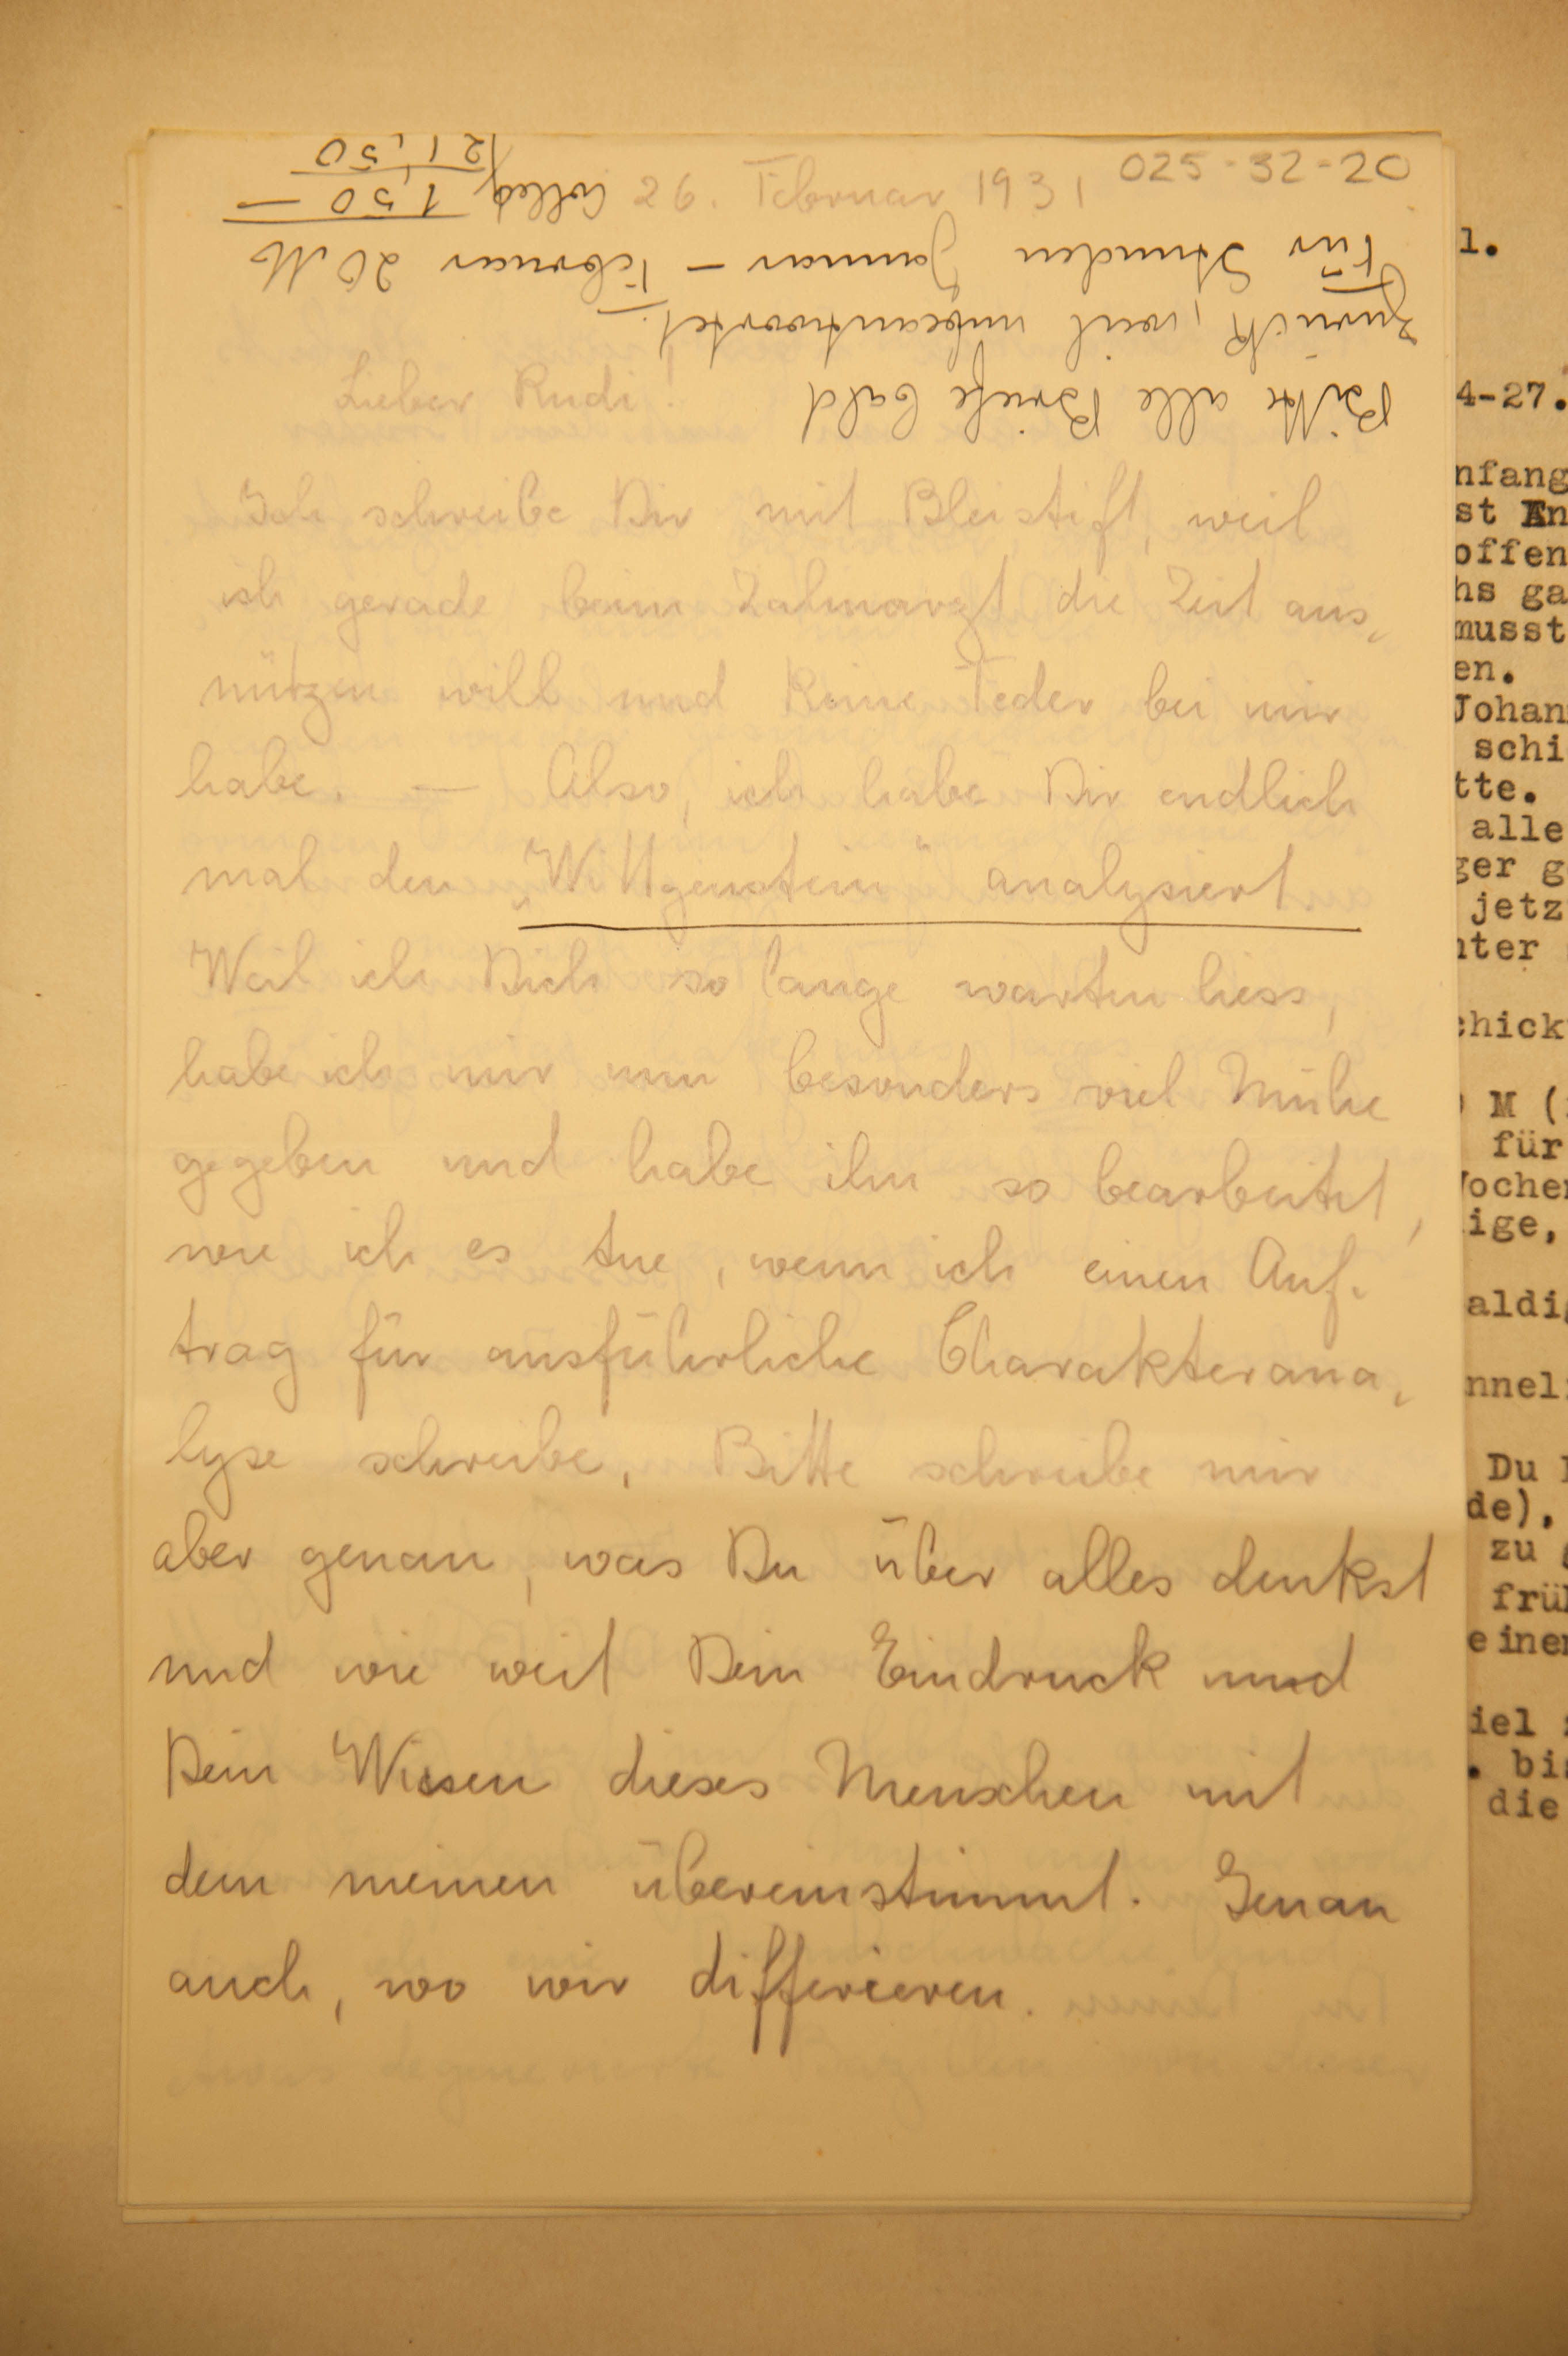 025-32-20
26. Februar 1931
Bitte alle Briefe bald
zurück, weil unbeantwortet.
Für Stunden Januar – Februar 20 M
1,50 –
21,50
Lieber Rudi!
Ich schreibe Dir mit Bleistift, weil
ich gerade beim Zahnarzt die Zeit aus-
nützen will und keine Feder bei mir
habe. — Also, ich habe Dir endlich
mal den „Wittgenstein" analysiert
Weil ich Dich so lange warten liess,
habe ich mir nun besonders viel Mühe
gegeben und habe ihn so bearbeitet,
wie ich es tue, wenn ich einen Auf-
trag für ausführliche Charakterana-
lyse schreibe. Bitte schreibe mir
aber genau, was Du über alles denkst
und wie weit Dein Eindruck und
Dein Wissen dieses Menschen mit
dem meinen übereinstimmt. Genau
auch, wo wir differieren.
l.
4-27.
nfang
st An
offen
hs ga
musst
en.
Johan
schi
tte.
alle
ger g
jetz
nter
chick
M (
für
Woche
ige,
aldi
nnel
Du
de),
zu
frü
einer
iel
. bi
die